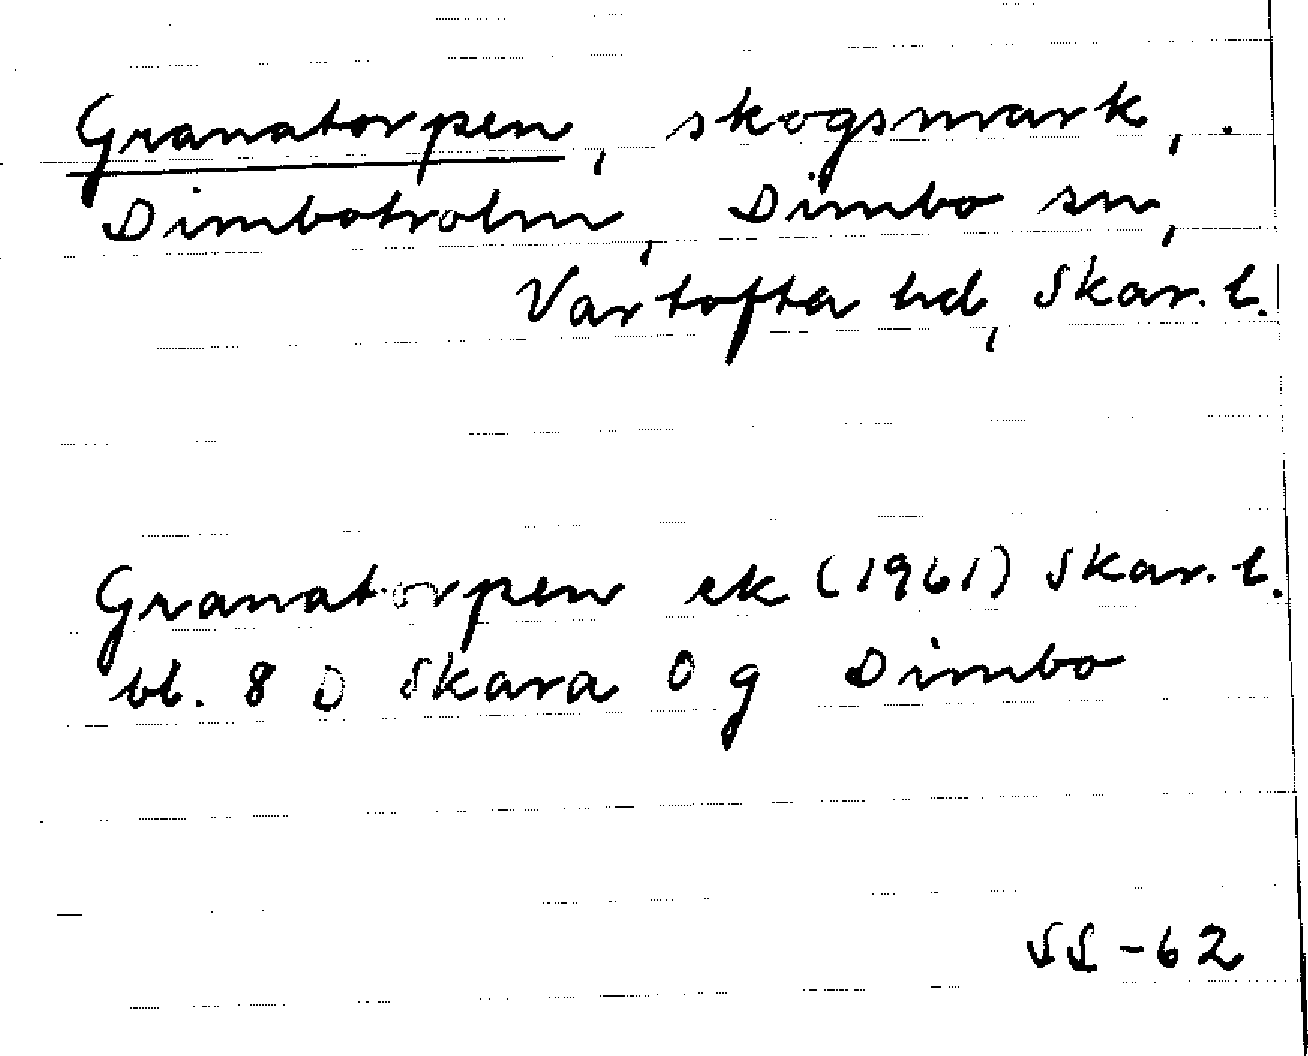 Granatorpen, skogsmark,
Dimboholm, Dimbo sn,
Vartofta hd, Skar. l.
Granatorpen ek (1961) Skar. l.
bl. 8 D Skara 0 g Dimbo
SS -62